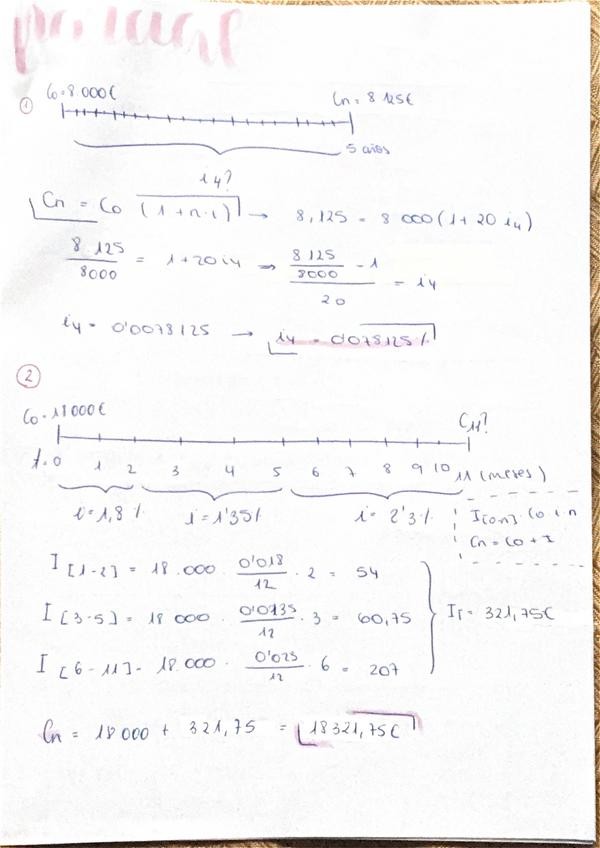 ① C0 = 8.000€ Cn = 8 125€
5 años
i4?
Cn = C0 (1 + n·i) → 8,125 = 8 000 (1 + 20 i4)
8 125 / 8000 = 1 + 20 i4 → (8 125 / 8000 - 1) / 20 = i4
i4 = 0'0078125 → i4 = 0'078125 %
②
C0 = 18 000€ C11?
t=0 1 2 3 4 5 6 7 8 9 10 11 (meses)
i = 1,8 % i = 1'35% i = 2'3 %
I[0,n] = C0 i n
Cn = C0 + I
I [1-2] = 18.000 · 0'018 / 12 · 2 = 54
I [3-5] = 18 000 · 0'0135 / 12 · 3 = 60,75
IT = 321,75€
I [6-11] = 18.000 · 0'023 / 12 · 6 = 207
Cn = 18 000 + 321,75 = 18 321,75€